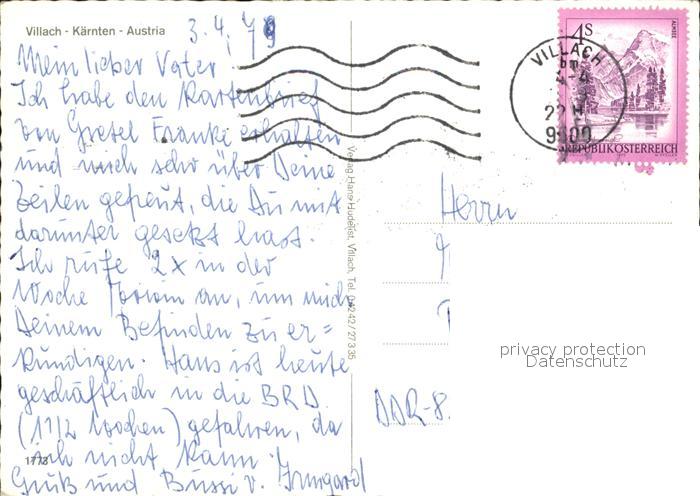 Villach - Kärnten - Austria
3.4.79
Mein lieber Vater.
Ich habe den Kartenbrief
von Gretel Franke erhalten
und mich sehr über Deine
Zeilen gefreut, die Du mit
darunter gesetzt hast.
Ich rufe 2x in der
Woche an, um mich
Deinem Befinden zu er=
kundigen. Hans ist heute
geschäftlich in die BRD
(1 1/2 Wochen) gefahren, da
ich nicht kann
Gruß und Bussi v. Irmgard
1773
Verlag Hans Hudelist, Villach, Tel. 04242/27335
4S
ALMSEE
REPUBLIK ÖSTERREICH
VILLACH
9500
Herrn
DDR-8
privacy protection
Datenschutz